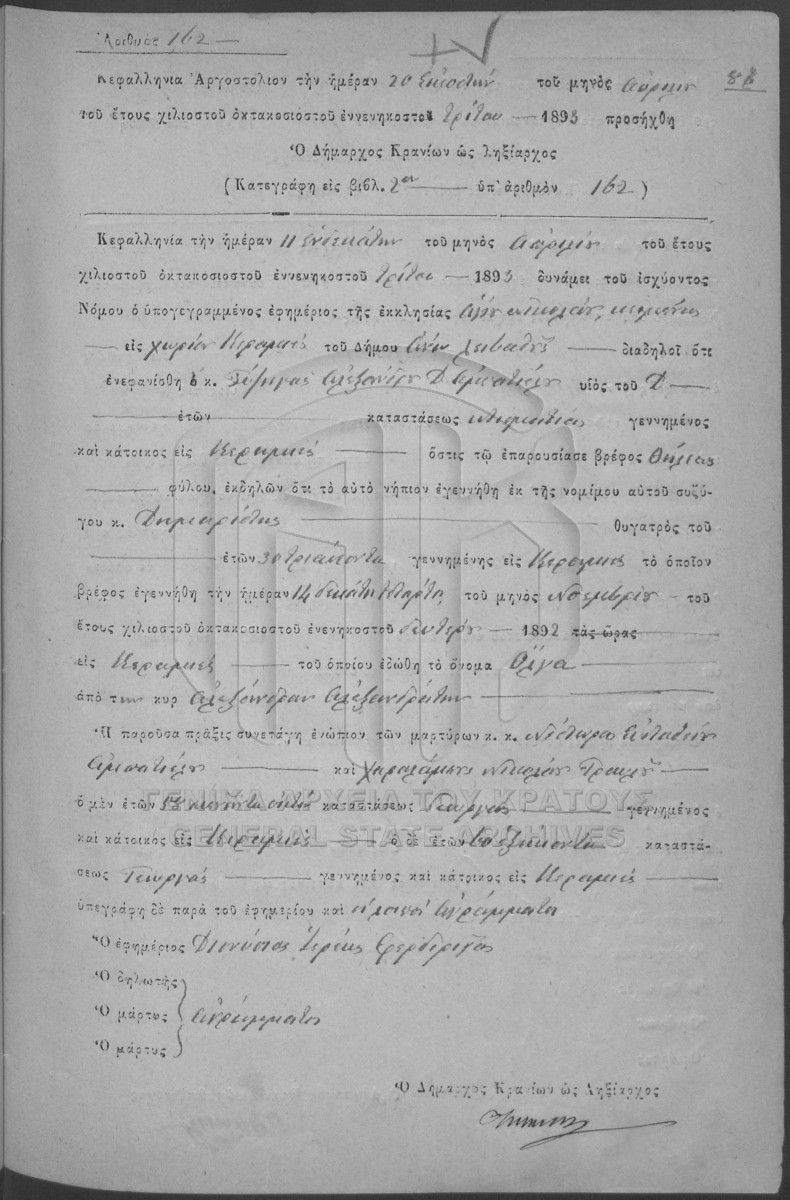 Ἀριθμὸς 162 —
87
Κεφαλληνία Ἀργοστόλιον τὴν ἡμέραν 20 Εἰκοστήν τοῦ μηνὸς Ἀπριλίου
τοῦ ἔτους χιλιοστοῦ ὀκτακοσιοστοῦ ἐννενηκοστοῦ Τρίτου — 1893 προσήχθη
Ὁ Δήμαρχος Κρανίων ὡς ληξίαρχος
(Κατεγράφη εἰς βιβλ. 2ον ὑπ' ἀριθμὸν 162)
Κεφαλληνία τὴν ἡμέραν 11 ἑνδεκάτην τοῦ μηνὸς Ἀπριλίου τοῦ ἔτους
χιλιοστοῦ ὀκτακοσιοστοῦ ἐννενηκοστοῦ τρίτου — 1893 δυνάμει τοῦ ἰσχύοντος
Νόμου ὁ ὑπογεγραμμένος ἐφημέριος τῆς ἐκκλησίας Ἁγίου Νικολάου
— εἰς χωρίον Κεραμιές τοῦ Δήμου Ἄνω Λειβαθοῦς — διαδηλοῖ ὅτι
ἐνεφανίσθη ὁ κ. Ἀλεξάνδρου Δ υἱὸς τοῦ Δ —
ἐτῶν καταστάσεως κτηματίας γεννημένος
καὶ κάτοικος εἰς Κεραμιές — ὅστις τῷ ἐπαρουσίασε βρέφος θήλεως
φύλου, ἐκδηλῶν ὅτι τὸ αὐτὸ νήπιον ἐγεννήθη ἐκ τῆς νομίμου αὐτοῦ συζύ-
γου κ. θυγατρὸς τοῦ
ἐτῶν 30 τριάκοντα γεννημένης εἰς Κεραμιές τὸ ὁποῖον
βρέφος ἐγεννήθη τὴν ἡμέραν 14 δεκάτη τετάρτη τοῦ μηνὸς Νοεμβρίου — τοῦ
ἔτους χιλιοστοῦ ὀκτακοσιοστοῦ ἐνενηκοστοῦ δευτέρου — 1892 τὰς ὥρας
εἰς Κεραμιές — τοῦ ὁποίου ἐδώθη τὸ ὄνομα Ὄλγα —
ἀπὸ την κυρ Ἀλεξάνδραν Ἀλεξανδράτου —
Ἡ παροῦσα πρᾶξις συνετάγη ἐνώπιον τῶν μαρτύρων κ. κ. Νέστωρα Εὐσταθίου
— καὶ Χαραλάμπους Νικολάου —
ὁ μὲν ἐτῶν 58 πενήντα οκτώ καταστάσεως Γεωργός — γεννημένος
καὶ κάτοικος εἰς Κεραμιές — ὁ δὲ ἐτῶν 60 ἑξήκοντα καταστά-
σεως Γεωργός — γεννημένος καὶ κάτοικος εἰς Κεραμιές —
ὑπεγράφη δὲ παρὰ τοῦ ἐφημερίου καὶ οἱ λοιποί ἀγράμματοι
Ὁ ἐφημέριος Διονύσιος Ἱερεὺς
Ὁ δηλωτὴς
Ὁ μάρτυς } ἀγράμματοι
Ὁ μάρτυς
Ὁ Δήμαρχος Κρανίων ὡς Ληξίαρχος
ΓΕΝΙΚΑ ΑΡΧΕΙΑ ΤΟΥ ΚΡΑΤΟΥΣ
GENERAL STATE ARCHIVES